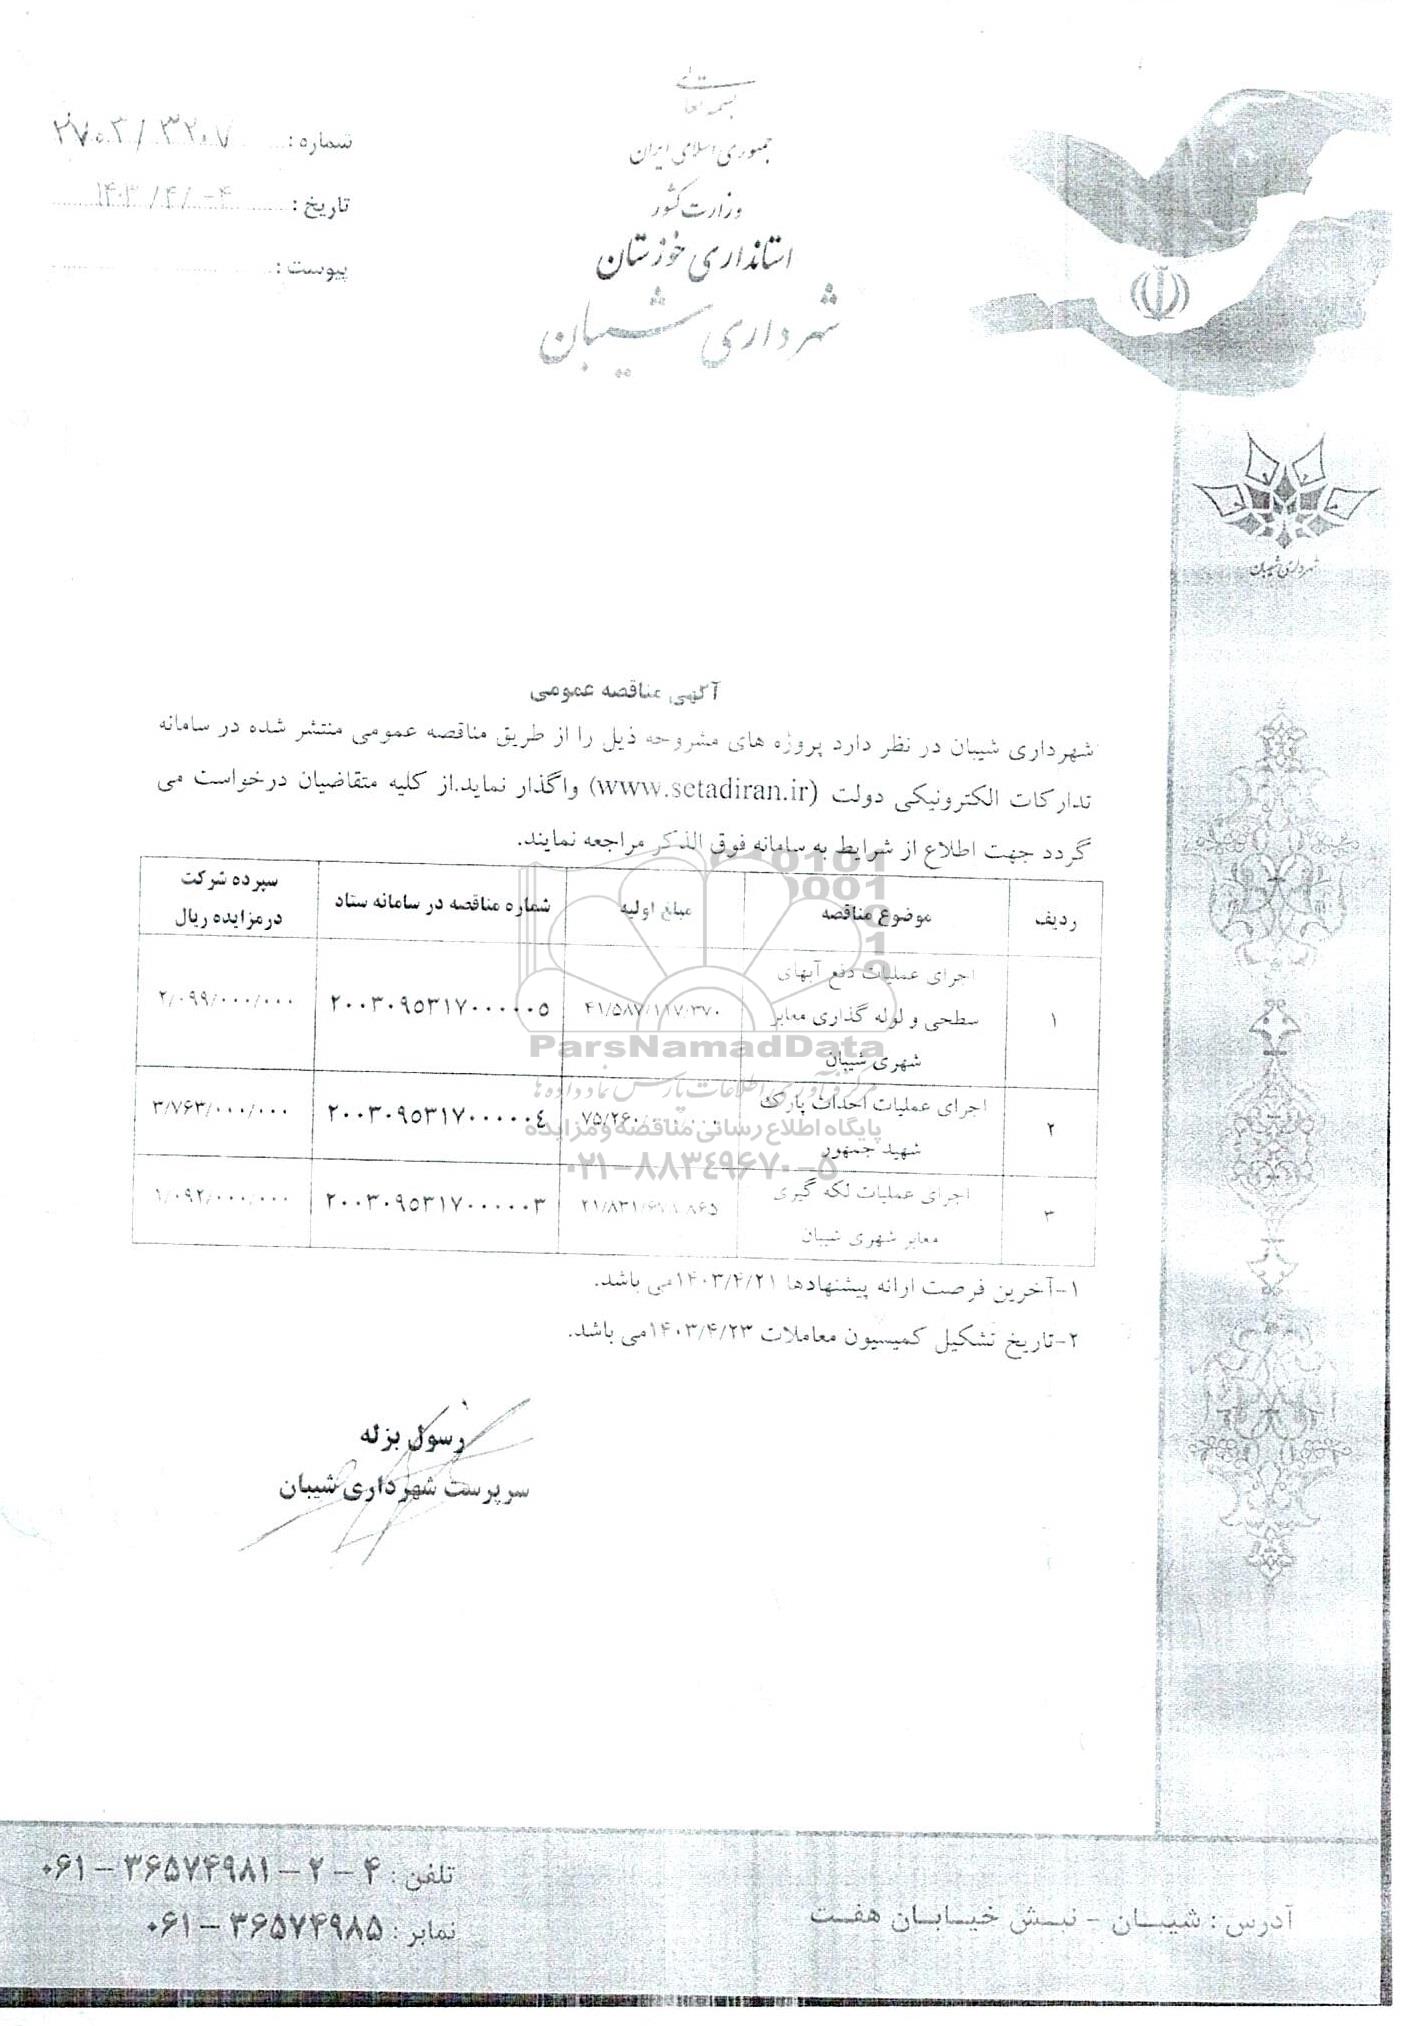 بسمه تعالی
جمهوری اسلامی ایران
وزارت کشور
استانداری خوزستان
شهرداری شیبان
شماره :
تاریخ : ۱۴۰۳/۴/۰۴
پیوست :
شهرداری شیبان
آگهی مناقصه عمومی
شهرداری شیبان در نظر دارد پروژه های مشروحه ذیل را از طریق مناقصه عمومی منتشر شده در سامانه
تدارکات الکترونیکی دولت (www.setadiran.ir) واگذار نماید.از کلیه متقاضیان درخواست می
گردد جهت اطلاع از شرایط به سامانه فوق الذکر مراجعه نمایند.
ردیف موضوع مناقصه مبلغ اولیه شماره مناقصه در سامانه ستاد سپرده شرکت درمزایده ریال
۱ اجرای عملیات دفع آبهای سطحی و لوله گذاری معابر شهری شیبان ۴۱/۵۸۷/۱۱۷/۳۷۰ ۲۰۰۳۰۹۵۳۱۷۰۰۰۰۰۵ ۲/۰۹۹/۰۰۰/۰۰۰
۲ اجرای عملیات احداث پارک شهید جمهور ۲۰۰۳۰۹۵۳۱۷۰۰۰۰۰۴ ۳/۷۶۳/۰۰۰/۰۰۰
۳ اجرای عملیات لکه گیری معابر شهری شیبان ۲۰۰۳۰۹۵۳۱۷۰۰۰۰۰۳ ۱/۰۹۲/۰۰۰/۰۰۰
ParsNamadData
مرکز فرآوری اطلاعات پارس نماد داده ها
پایگاه اطلاع رسانی مناقصه و مزایده
۰۲۱-۸۸۳۴۹۶۷۰-۵
۱-آخرین فرصت ارائه پیشنهادها ۱۴۰۳/۴/۲۱می باشد.
۲-تاریخ تشکیل کمیسیون معاملات ۱۴۰۳/۴/۲۳می باشد.
رسول بزله
سرپرست شهرداری شیبان
آدرس : شیبان - نبش خیابان هفت
تلفن : ۴ - ۲ - ۳۶۵۷۴۹۸۱ - ۰۶۱
نمابر : ۳۶۵۷۴۹۸۵ - ۰۶۱